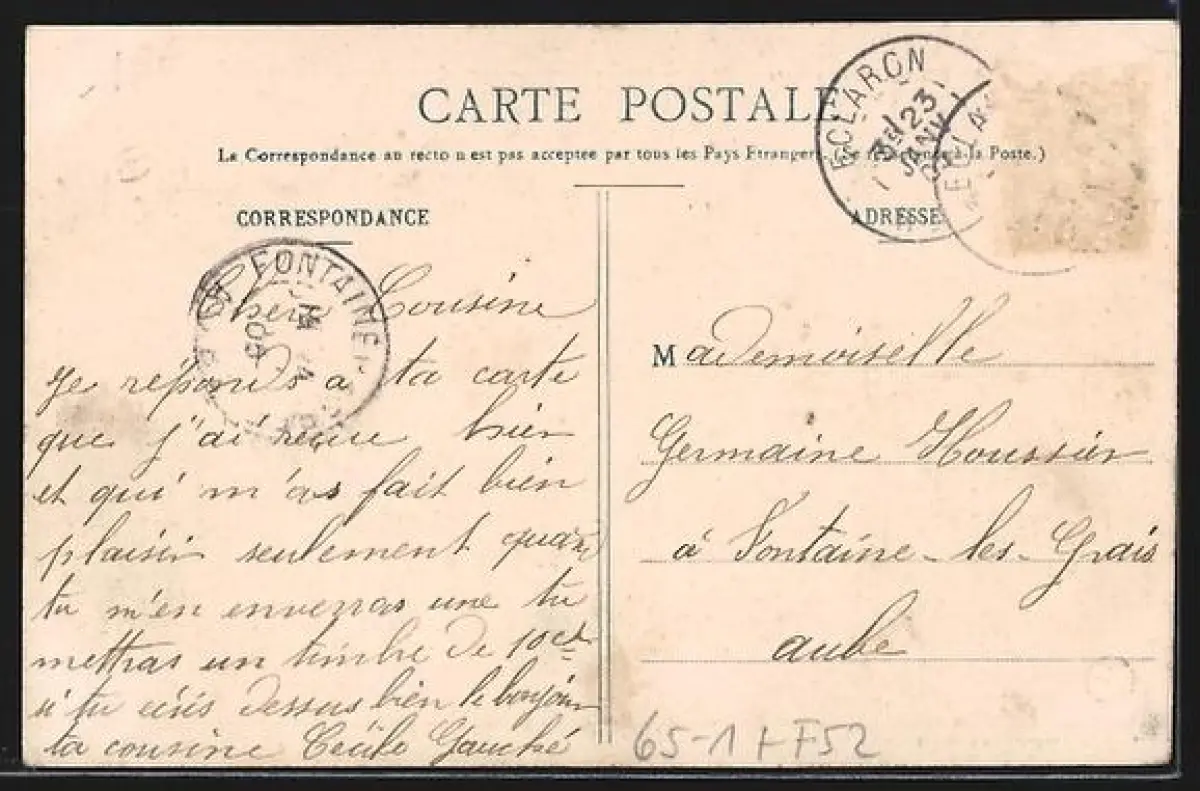 CARTE POSTALE
La Correspondance au recto n'est pas acceptée par tous les Pays Etrangers. (Se renseigner à la Poste.)
CORRESPONDANCE
ADRESSE
ECLARON
23
JANV
ECLA
FONTAINE
Chère Cousine
je réponds a ta carte
que j'ai reçue hier
et qui m'as fait bien
plaisir seulement quand
tu m'en enverras une tu
mettras un timbre de 10ct
si tu écris dessus bien le bonjour
ta cousine Cécile Gauché
Mademoiselle
Germaine Houssier
à Fontaine-les-Grais
aube
65-1 + F52